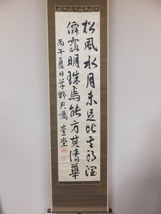 松風水月未足比其朗潤
僊露明珠能方其清華
丙午夏日